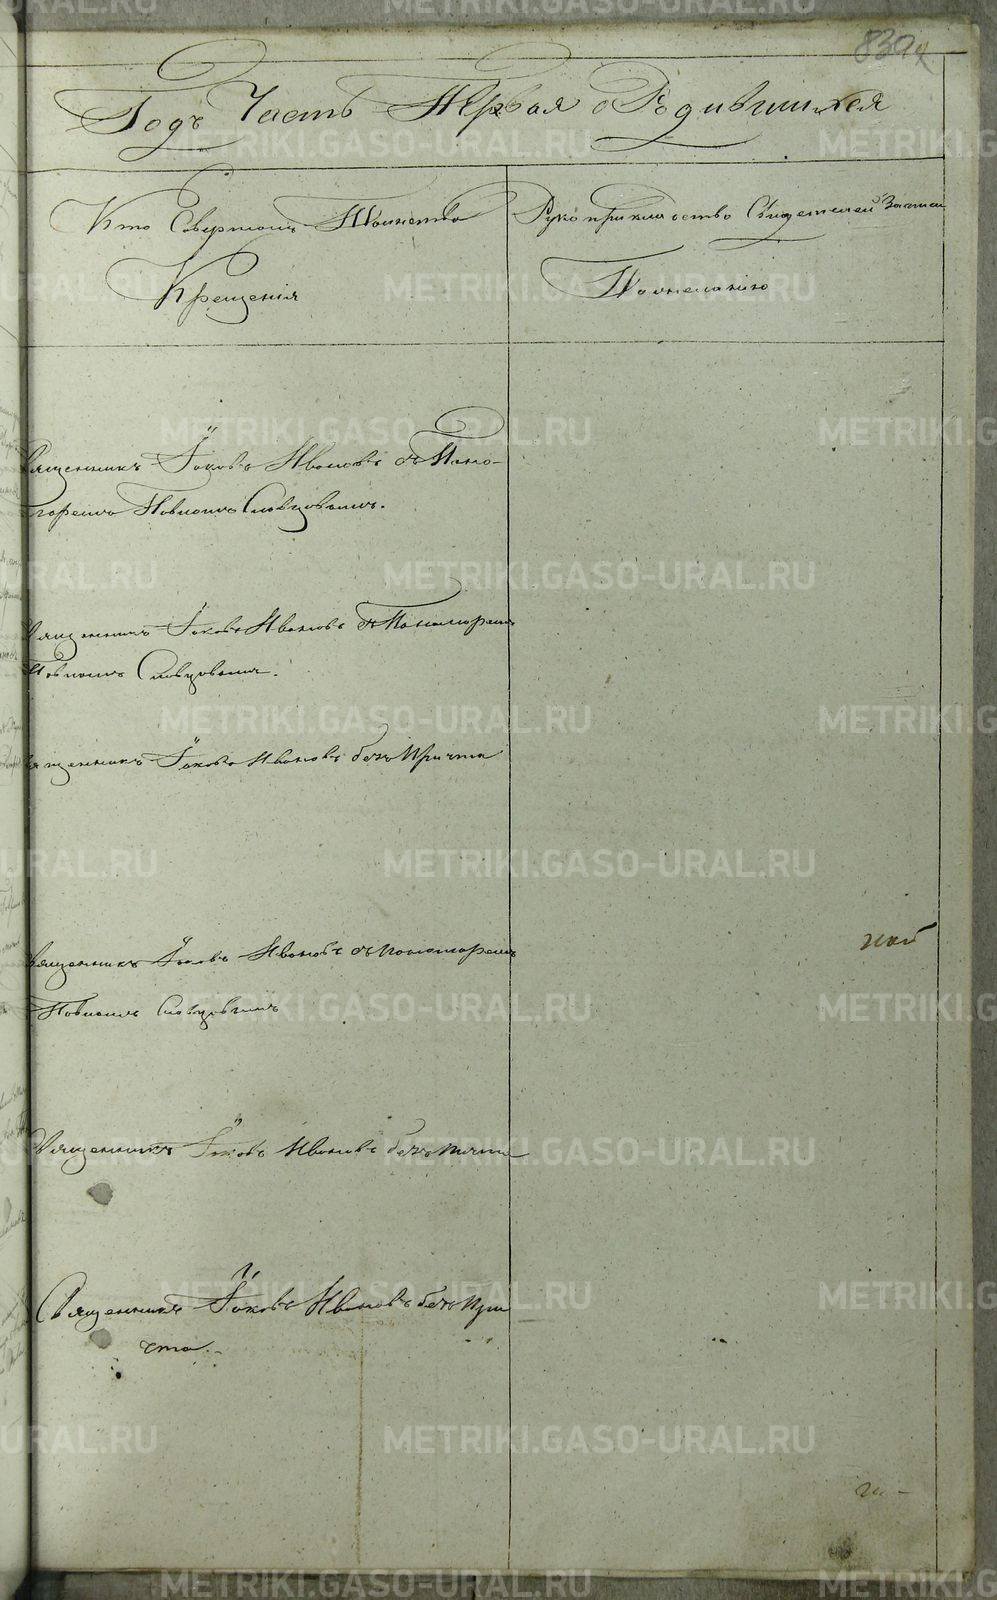 839
Годъ Часть Первая о Родившихся
Кто Совершалъ Таинство
Крещенія
Рукоприкладство Свидетелей Записи
По желанію
Священникъ Іаковъ Ивановъ съ Поно-
маремъ Павломъ Словцовымъ.
Священникъ Іаковъ Ивановъ съ Пономаремъ
Павломъ Словцовымъ.
Священникъ Іаковъ Ивановъ безъ Причта
Священникъ Іаковъ Ивановъ съ пономаремъ
Павломъ Словцовымъ
Священникъ Іаковъ Ивановъ безъ причта
Священникъ Іаковъ Ивановъ безъ При
чта.
METRIKI.GASO-URAL.RU